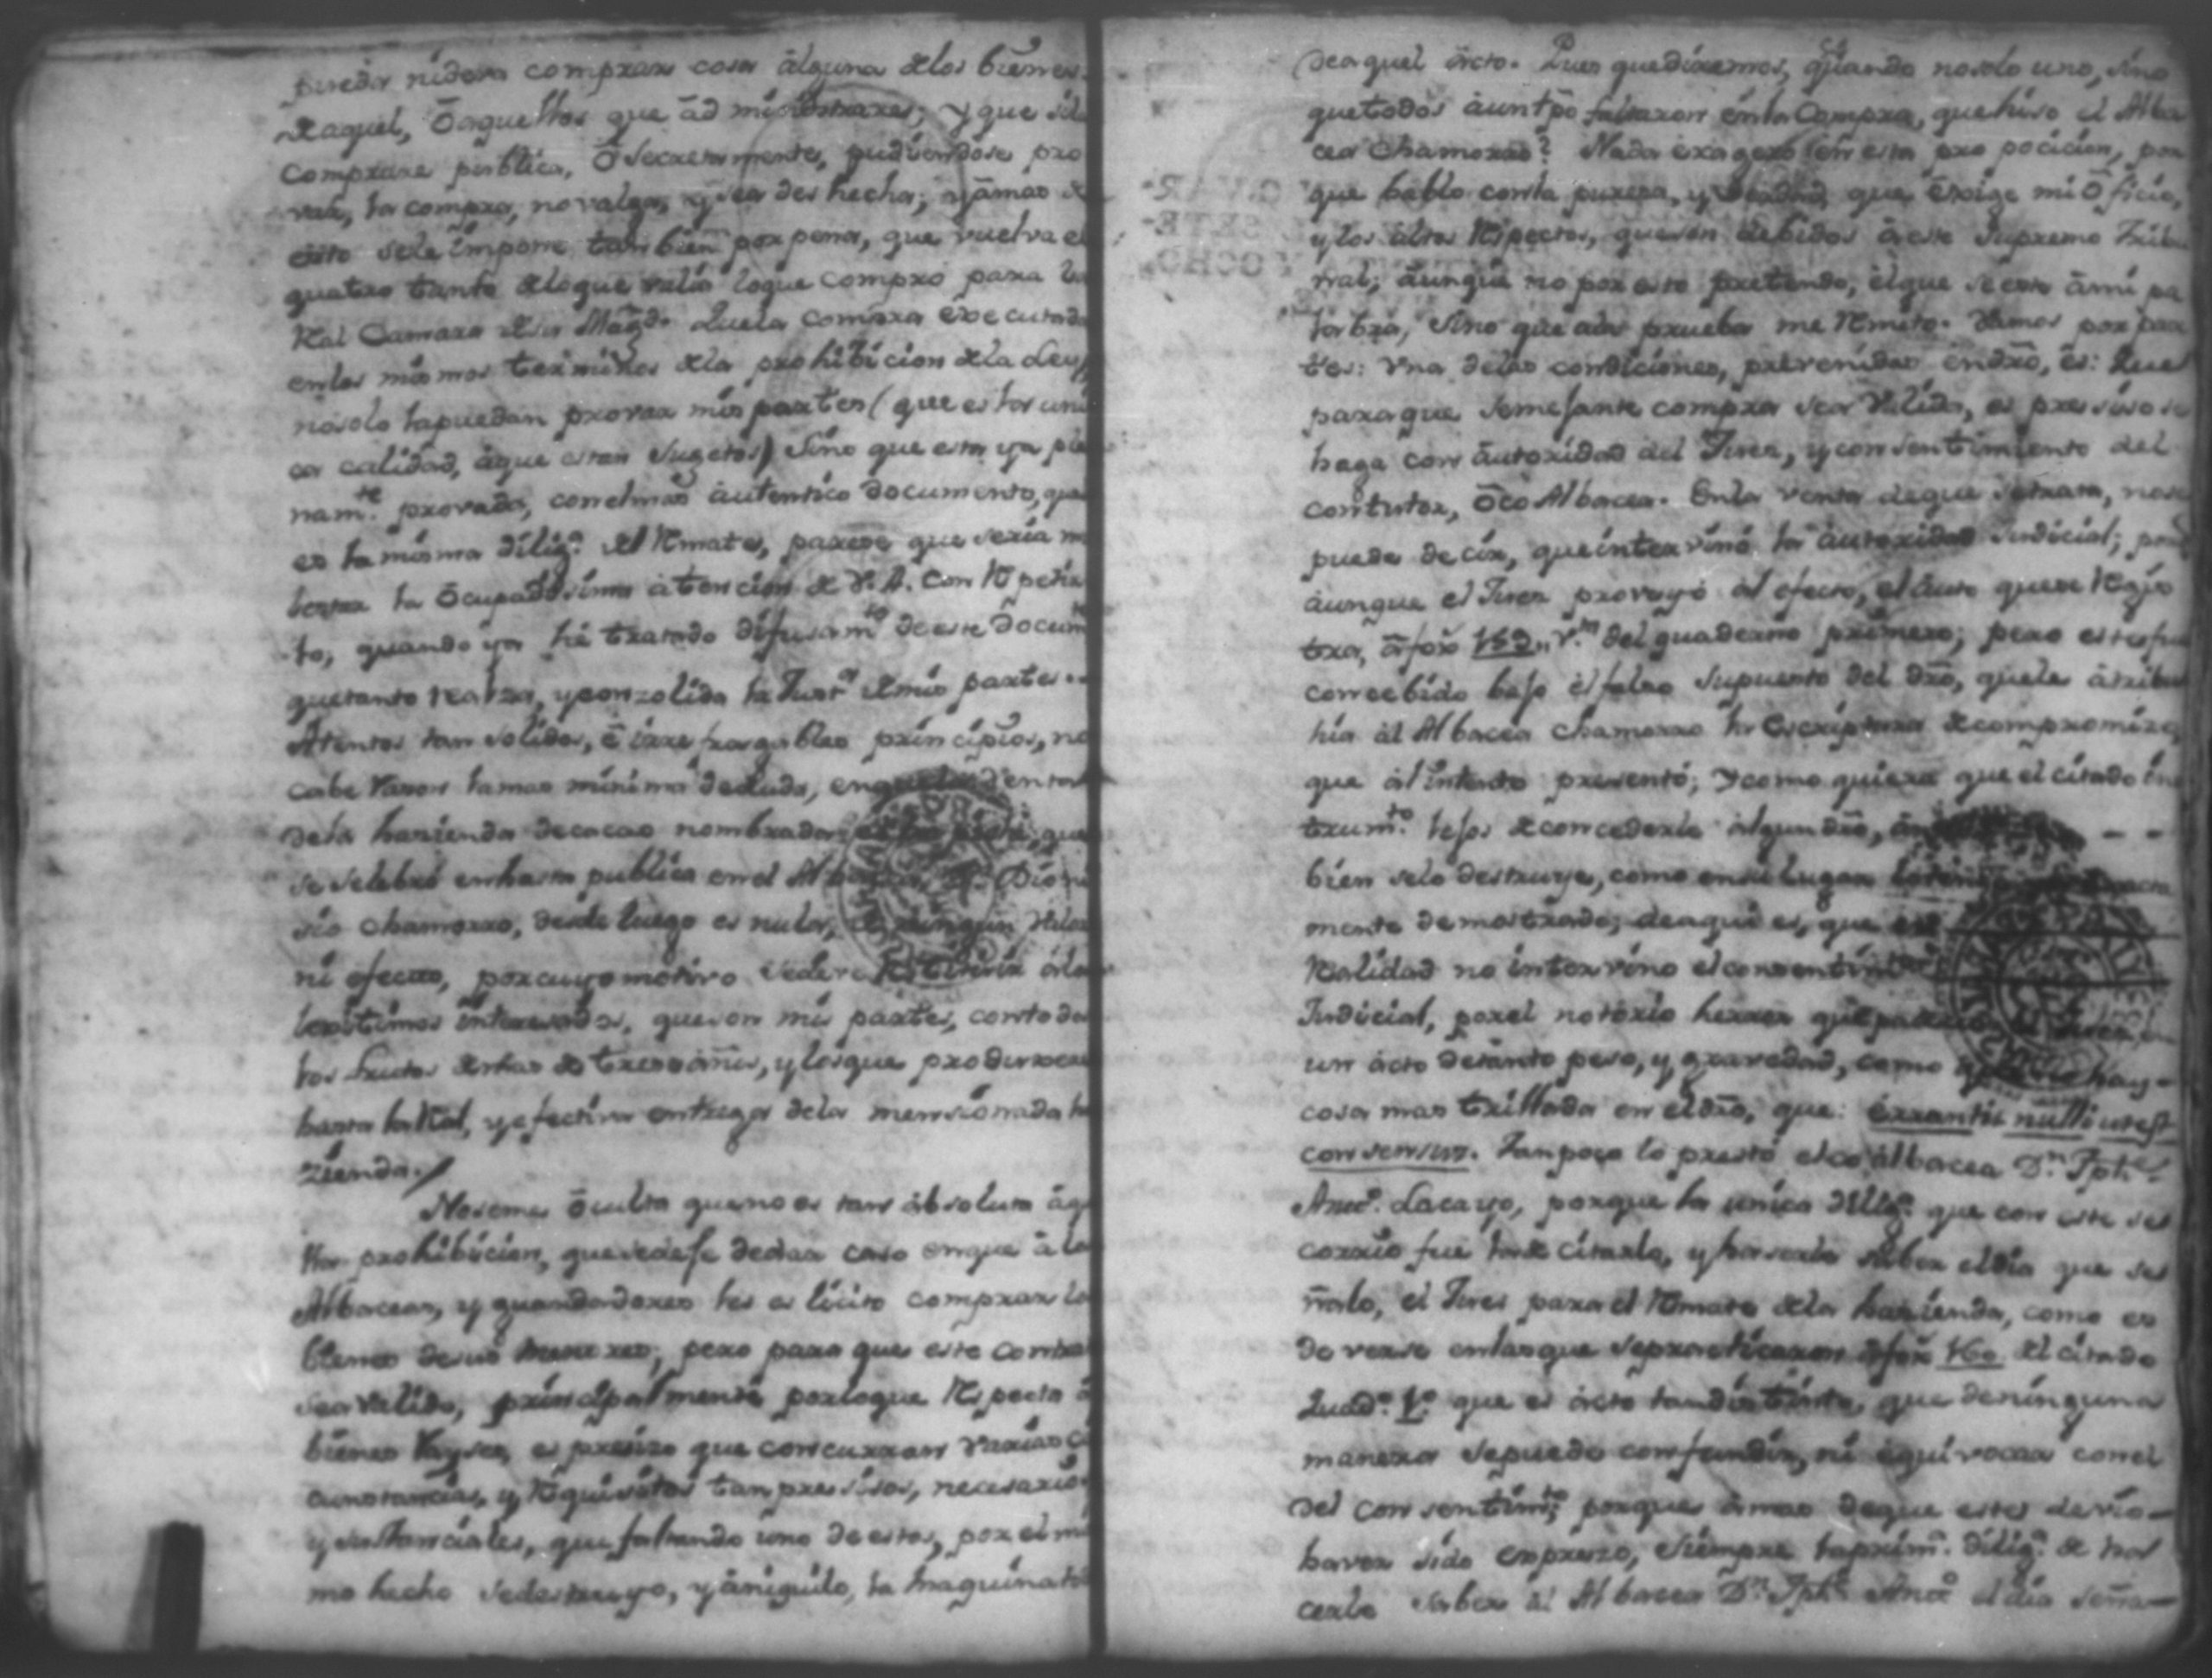 pueda nideva comprar cosa alguna delos bienes
deaquel, ō aquellos que ād ministrare; y que si lo
comprare publica, ō secretamente, pudiendose pro
var, la compra, no valga, y sea des hecha; y āmas de
esto sele impone tambien por pena, que vuelva el
quatro tanto deloque valía loque compró para la
Râl Camara desu Magd. Quela compra executada
enlos mismos terminos dela prohibicion dela Ley,
nosolo lapuedan provar mis partes (que es la uni
ca calidad, áque estan sugetos) Sino que esta ya ple
namte. provada, conelmas autentico documento, que
es la misma dilig.a del Rmate, parece que seria mo
lestar la ōcupadissima atencion de V.A. con Rpetir
lo, quando ya hé tratado difusamto de este docum
quetanto realza, yconzolida la Just.a demis partes.
Atentos tan solidos, ē irrefragables principios, no
cabe razon lamas minima deduda, enque
dela hazienda decacao nombrada que
se selebró enhasta publica enel Albacea Dn. Dioni
sio Chamorro, desde luego es nula, de ningun valor
ni efecto, porcuyo motivo sedeve Rstituir álos
lexitimos interesados, queson mis partes, contodos
los frutos demas de tresâños, ylosque produxere
hasta laRâl, yefectiva entrega dela mensionada ha
zienda./
Noseme ōculta queno es tan absoluta áque
lla prohibicion, quesedeje dedar caso enque á los
Albaceas, y guardadores les es licito comprar los
bienes desus menores; pero para que este contrato
sea valido, principalmente porloque Rspecta á
bienes Rayses, es preciso que concurran varias cir
cunstancias, y Rquisitos tan presisos, necesarios
y sustanciales, que faltando uno de estos, por el mis
mo hecho sedestruye, y āniquila, la maquinati
deaquel ácto. Pues quediremos, quando nosolo uno, sino
quetodos áuntpo faltaron enla Compra, quehiso el Alba
cea Chamorro? Nada exagero en esta pro pocicion, por
que hablo conla pureza, y verdad, que exige mi ōficio,
ylos altos Rspectos, queson debidos áeste Supremo Tribu
nal; āunqûe no por esto pretendo, elque secrea āmi pa
labra, sino que álas pruebas me Rmito. Vamos por par
tes: vna delas condiciones, prevenidas endro, ēs: Que
paraque semejante compra sea valida, es presiso se
haga con āutoridad del Juez, yconsentimiento del
contutor, ōco Albacea. Enla venta deque setrata, nose
puede decir, queintervinó la áutoridad Judicial; por
áunque el Juez proveyó al efecto, el áuto quese Regis
tra, āfox 159,, v.to del quaderno primero; pero este fue
concebido bajo el falso supuesto del dro, quele átribu
hía ál Albacea Chamorro la Escriptura decompromizo,
que álintento presentó; Ycomo quiera que el citado ins
trumto. lejos deconcederle algun dro, - -
bien selo destruye, como ensu lugar
mente demostrado; deaqui es, que
Realidad no intervino el consentim
Judicial, porel notório herror que
un ácto detanto peso, y gravedad, como hay-
cosa mas trillada en eldro, que: errantis nulli usest
consensus. Tanpoco lo prestó elco albacea Dn. Jph.
Anto. Lacayo, porque la unica dilig.a que con este se
corrio fue lade citarlo, y haserle saber eldia que se
ñalo, el Juez para el Rmate dela hazienda, como es
de verse enlasque sepracticaron áfox 160 del citado
Quad.o 1.o que es ácto tandistinto, que deninguna
manera sepuede confundir, ni équivocar conel
del consentimto; porque āmas deque este devio-
haver sido expreso, siempre laprim.a dilig.a de ha
cerle saber ál Albacea Dn. Jph. Anto. el dia seña-